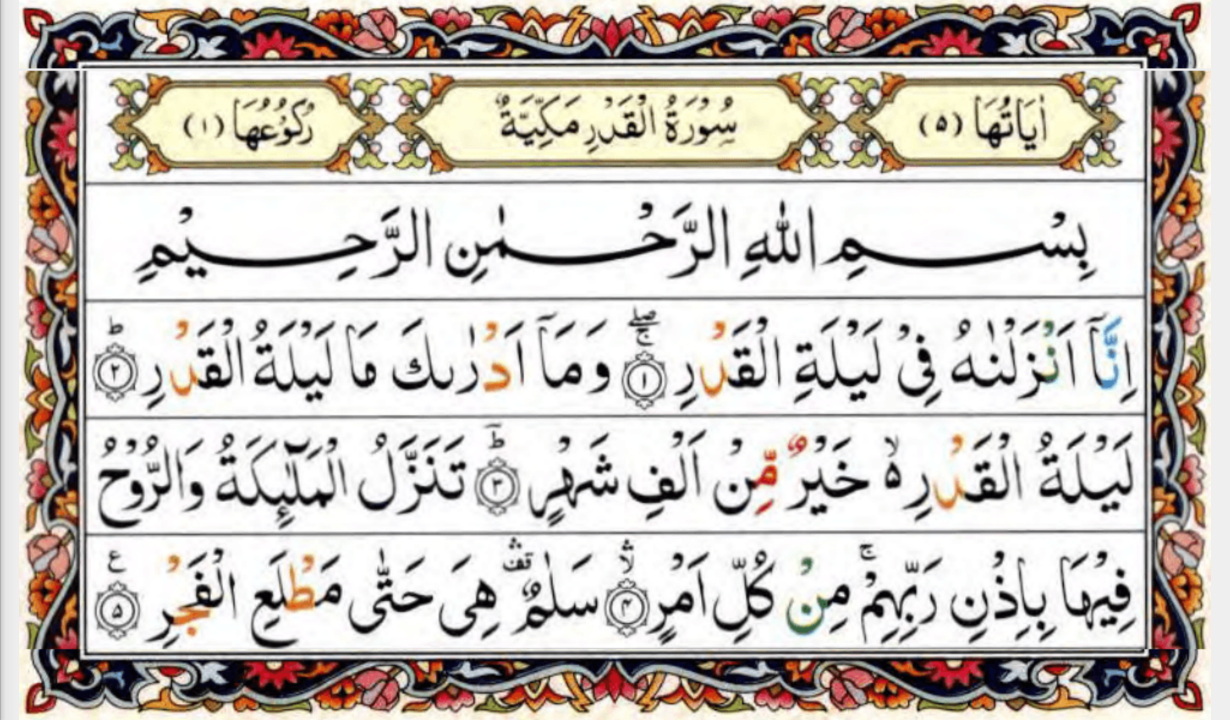 اٰيَاتُهَا (٥) سُوْرَةُ الْقَدْرِ مَكِّيَّةٌ رُكُوْعُهَا (١)
بِسْمِ اللّٰهِ الرَّحْمٰنِ الرَّحِيْمِ
اِنَّآ اَنْزَلْنٰهُ فِىْ لَيْلَةِ الْقَدْرِ ۚۖ ﴿١﴾ وَمَآ اَدْرٰىكَ مَا لَيْلَةُ الْقَدْرِ ؕ ﴿٢﴾
لَيْلَةُ الْقَدْرِ ۙ٥ خَيْرٌ مِّنْ اَلْفِ شَهْرٍ ؕ ﴿٣﴾ تَنَزَّلُ الْمَلٰٓئِكَةُ وَالرُّوْحُ
فِيْهَا بِاِذْنِ رَبِّهِمْ ۚ مِنْ كُلِّ اَمْرٍ ۙ ﴿٤﴾ سَلٰمٌ ۛ قف هِىَ حَتّٰى مَطْلَعِ الْفَجْرِ ﴿٥﴾ ع